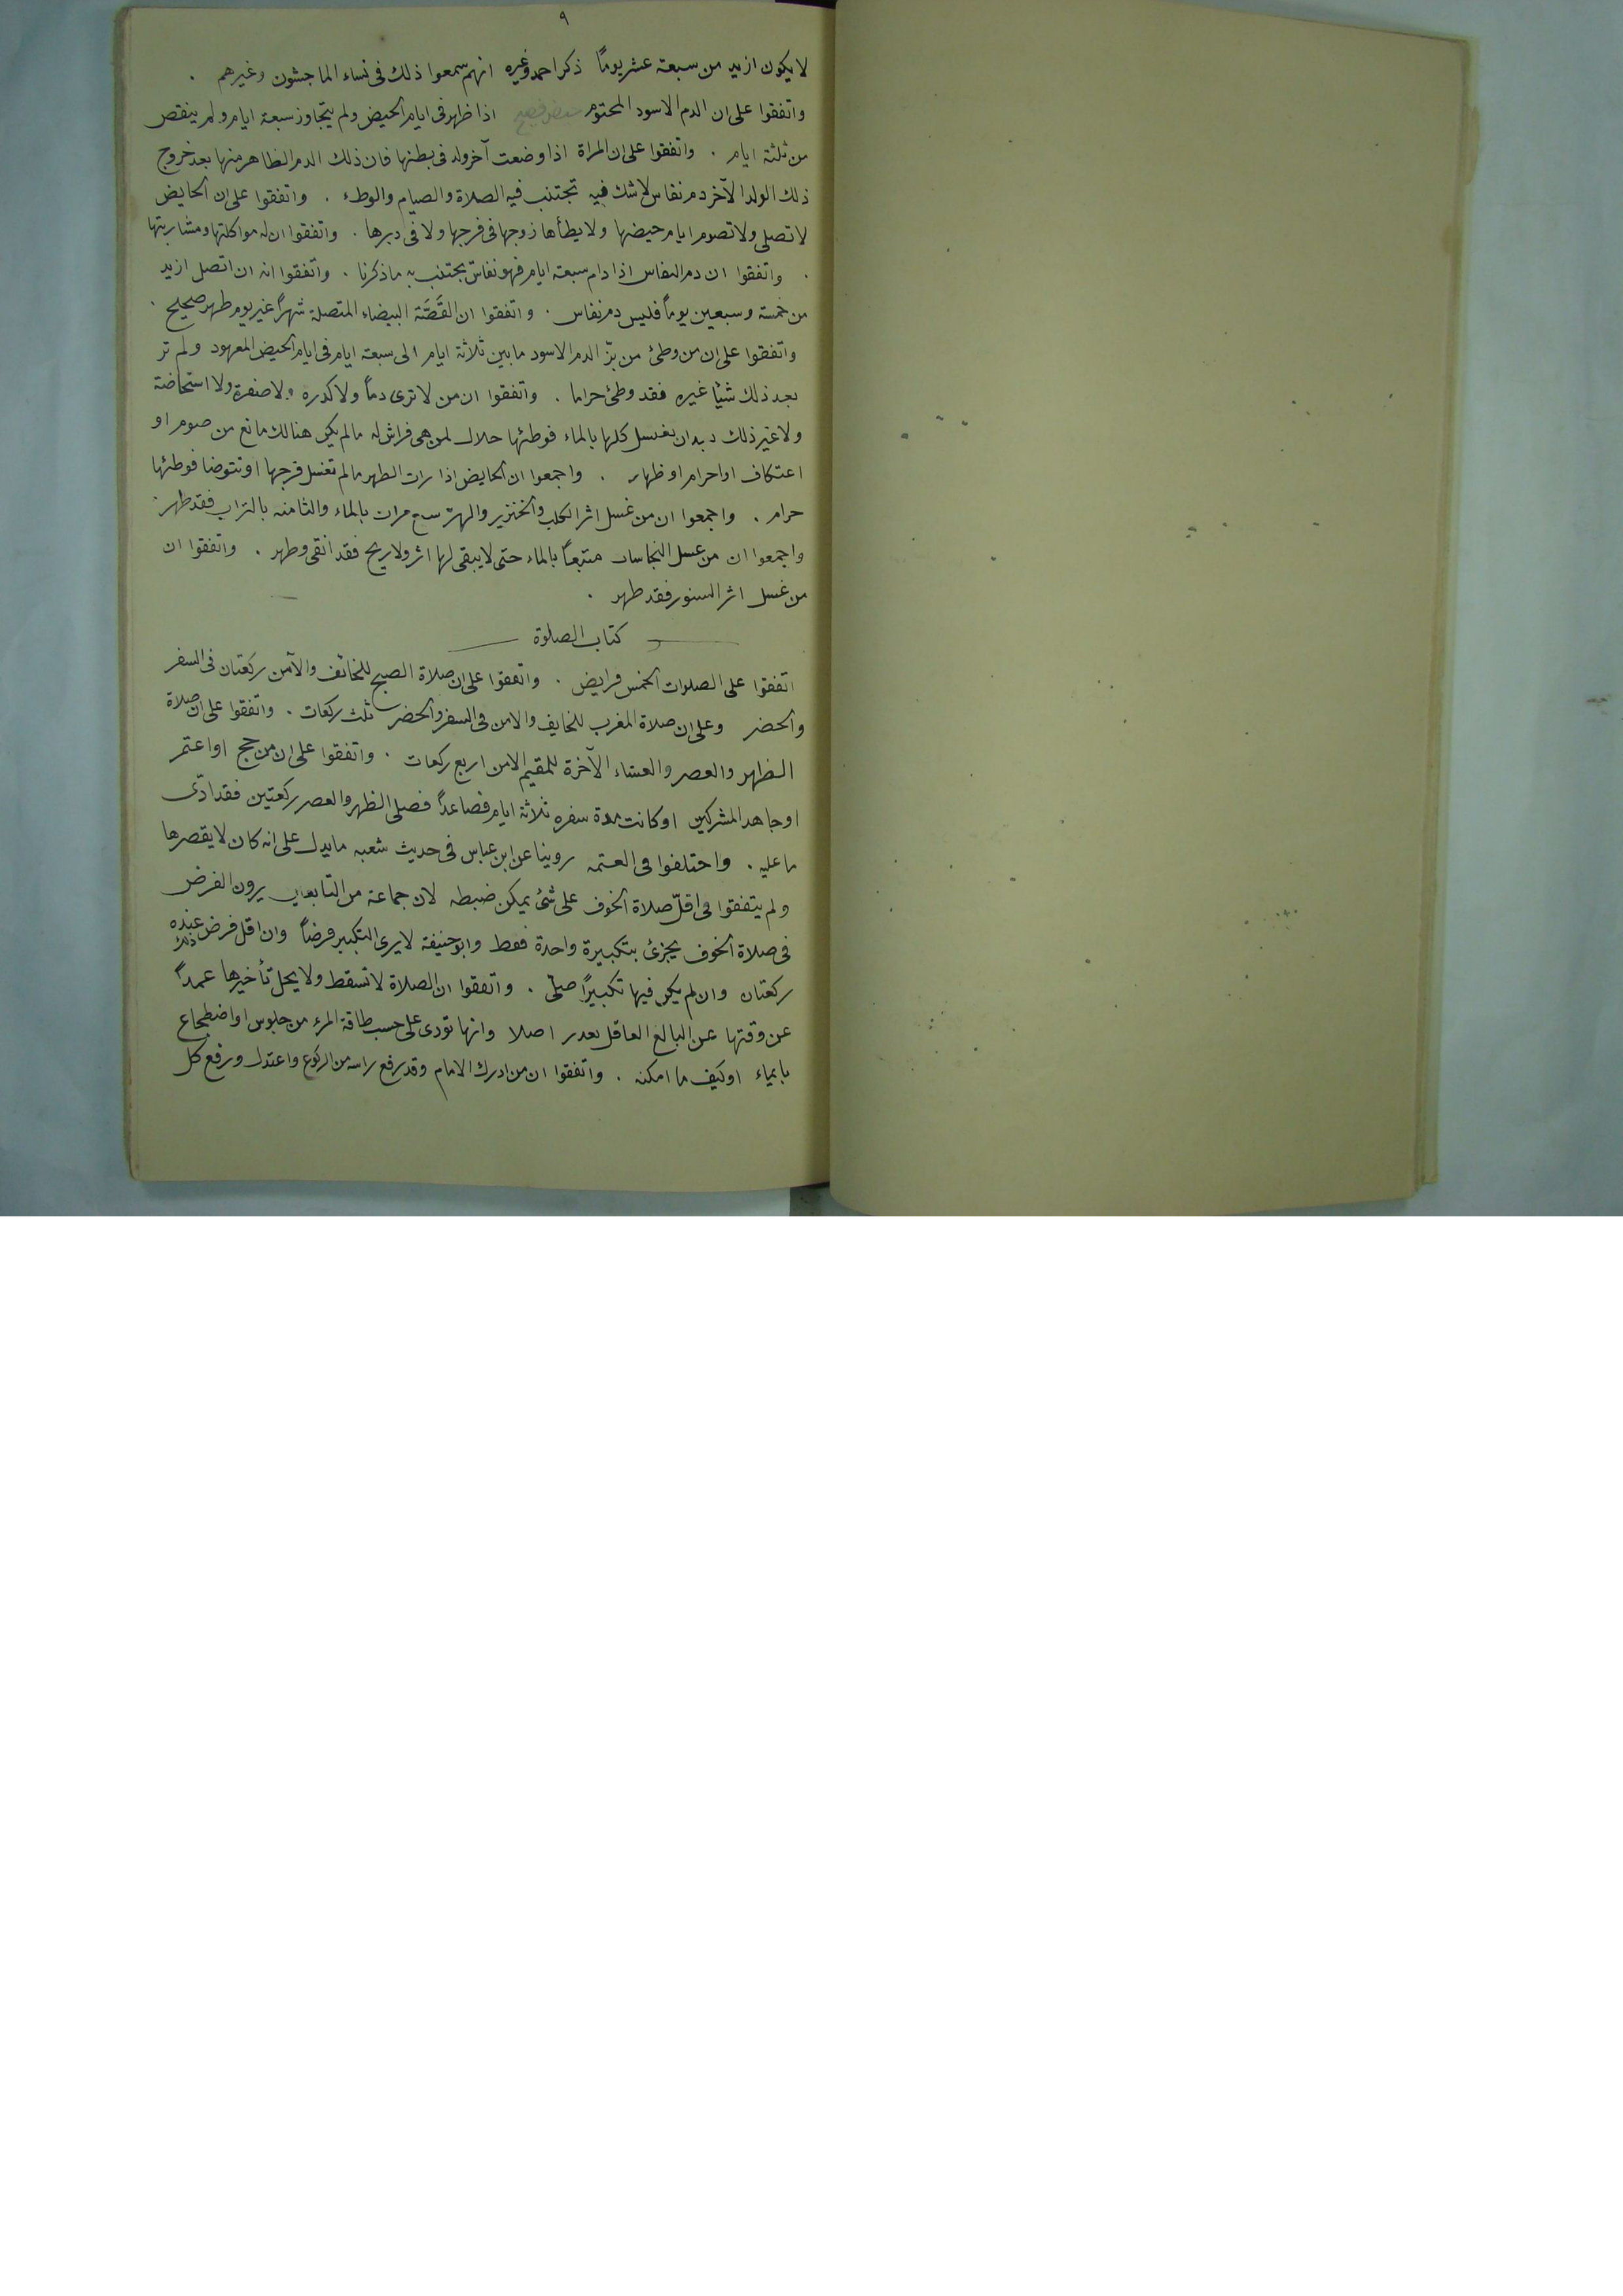 ٩
لا يكون ازيد من سبعة عشر يوماً ذكر احمد وغيره انهم سمعوا ذلك فى نساء الماجشون وغيرهم .
واتفقوا على ان الدم الاسود المحتوم اذا ظهر فى ايام الحيض ولم يتجاوز سبعة ايام ولم ينقص
من ثلثة ايام . واتفقوا على ان المراة اذا وضعت آخر ولد فى بطنها فان ذلك الدم الظاهر منها بعد خروج
ذلك الولد الآخر دم نفاس لا شك فيه تجتنب فيه الصلاة والصيام والوطء . واتفقوا على ان الحايض
لا تصلى ولا تصوم ايام حيضها ولا يطأها زوجها فى فرجها ولا فى دبرها . واتفقوا ان له مواكلتها ومشاربتها
. واتفقوا ان دم النفاس اذا دام سبعة ايام فهو نفاس يجتنب به ما ذكرنا . واتفقوا انه ان اتصل ازيد
من خمسة وسبعين يوماً فليس دم نفاس . واتفقوا ان القَصَّة البيضاء المتصلة شهراً غير يوم طهر صحيح .
واتفقوا على ان من وطئ من الدم الاسود ما بين ثلاثة ايام الى سبعة ايام فى ايام الحيض المعهود ولم تر
بعد ذلك شيئا غيره فقد وطئ حراما . واتفقوا ان من لا ترى دماً ولا كدره ولا صفرة ولا استحاضة
ولا غير ذلك بدان تغسل كلها بالماء فوطئها حلال لمن هى فراش له مالم يكن هنالك مانع من صوم او
اعتكاف او احرام او ظهار . واجمعوا ان الحايض اذا رات الطهر مالم تغسل فرجها او تتوضا فوطئها
حرام . واجمعوا ان من غسل اثر الكلب والخنزير والهرّ سبع مرات بالماء والثامنه بالتراب فقد طهر .
واجمعوا ان من غسل النجاسات متبعاً بالماء حتى لا يبقى لها اثر ولا ريح فقد انقى وطهر . واتفقوا ان
من غسل اثر السنور فقد طهر .
كتاب الصلوة
اتفقوا على الصلوات الخمس فرايض . واتفقوا على ان صلاة الصبح للخائف والآمن ركعتان فى السفر
والحضر وعلى ان صلاة المغرب للخايف والامن فى السفر والحضر ثلث ركعات . واتفقوا على ان صلاة
الظهر والعصر والعشاء الآخرة للمقيم الامن اربع ركعات . واتفقوا على ان من حج او اعتمر
او جاهد المشركين او كانت مدة سفره ثلاثة ايام فصاعداً فصلى الظهر والعصر ركعتين فقد ادّى
ما عليه . واختلفوا فى العتمه روينا عن ابن عباس فى حديث شعبه ما يدل على انه كان لا يقصرها
ولم يتفقوا فى اقلّ صلاة الخوف على شئ يمكن ضبطه لان جماعة من التابعين يرون الفرض
فى صلاة الخوف يجزئ بتكبيرة واحدة فقط وابو حنيفة لا يرى التكبير فرضاً وان اقل فرض عنده ذلك
ركعتان وان لم يكن فيها تكبيراً صلى . واتفقوا ان الصلاة لا تسقط ولا يحل تأخيرها عمداً
عن وقتها عن البالغ العاقل بعدر اصلا وانها تودى على حسب طاقة المرء من جلوس او اضطجاع
بايماء او كيف ما امكنه . واتفقوا ان من ادرك الامام وقد رفع راسه من الركوع واعتدل ورفع كل